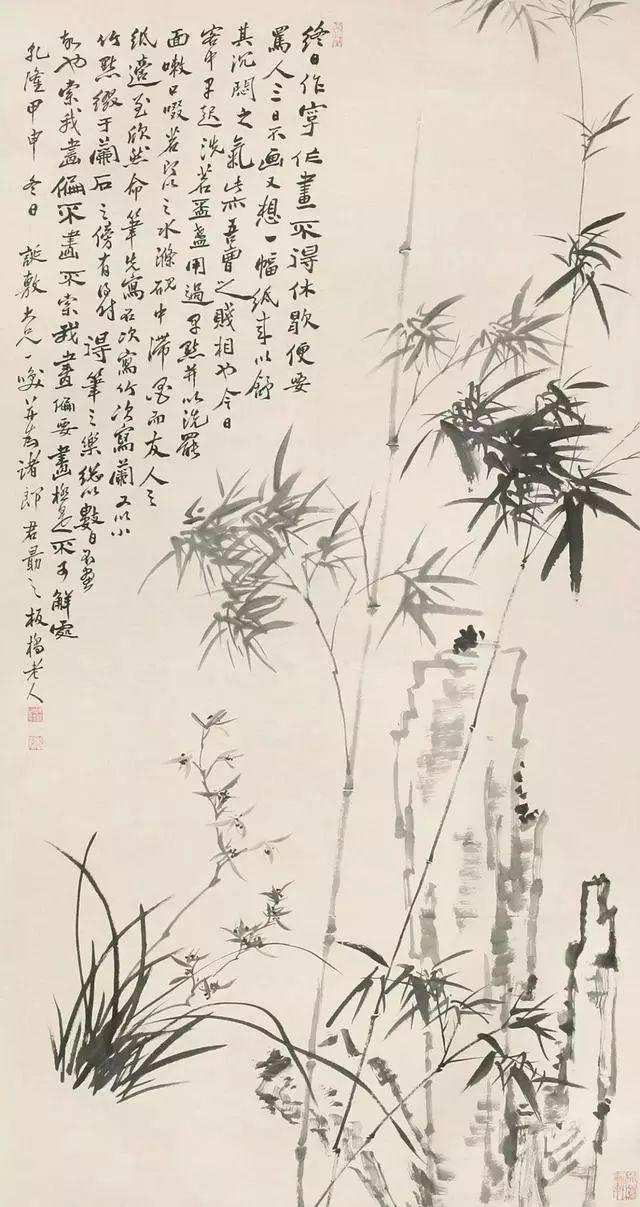 終日作字作畫不得休歇便要
罵人三日不画又想一幅紙來以舒
其沉悶之氣此亦吾曹之賤相也今日
客中早起洗茗盃盞用過早點并以洗罷
面嗽口啜茗以之水滌硯中滯墨而友人之
紙適至欣然命筆先寫石次寫竹次寫蘭又以小
竹點綴于蘭石之傍有得時得筆之樂總以數日不畫
故也索我畫偏不畫不索我畫偏要畫極是不可解處
乾隆甲申冬日 誕敷大兄一咲并为諸郎君勗之板橋老人